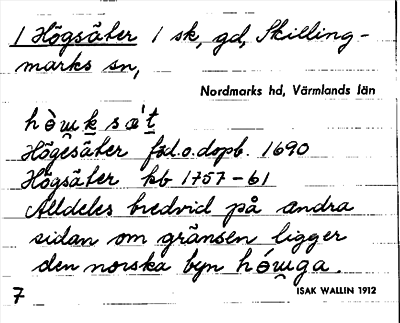 1 Högsäter 1 sk, gd, Skilling-
marks sn,
Nordmarks hd, Värmlands län
Högesäter föd.o.dopb. 1690
Högsäter kb 1757-61
Alldeles bredvid på andra
sidan om gränsen ligger
den norska byn
7
ISAK WALLIN 1912